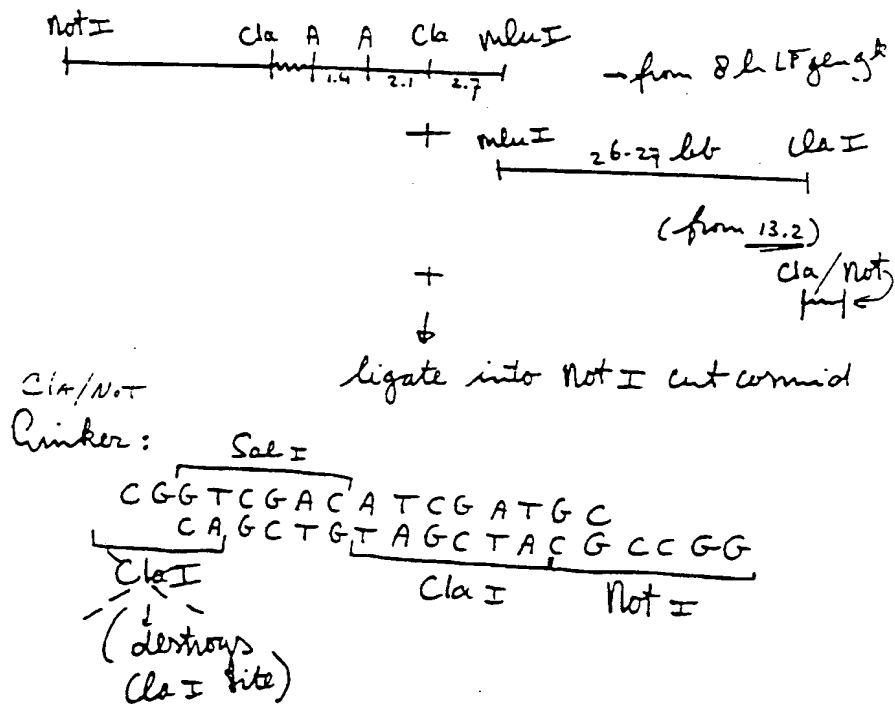 Not I Cla A A Cla mlu I
1.4 2.1 2.7
→ from 8 h LF
+
mlu I 26-27 kb Cla I
(from 13.2)
Cla/Not
+
↓
ligate into Not I cut cosmid
Cla/Not
Linker:
Sal I
C G G T C G A C A T C G A T G C
C A G C T G T A G C T A C G C C G G
Cla I Cla I Not I
(destroys
Cla I site)